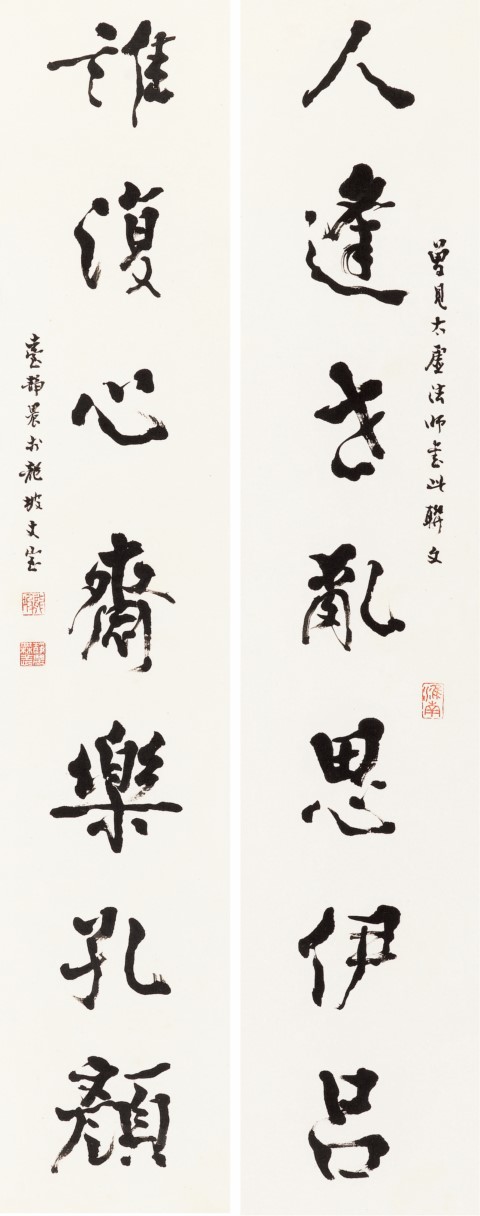 曾見太虛法師書此聯文
人逢世亂思伊呂
誰復心齋樂孔顏
臺靜農於龍坡丈室